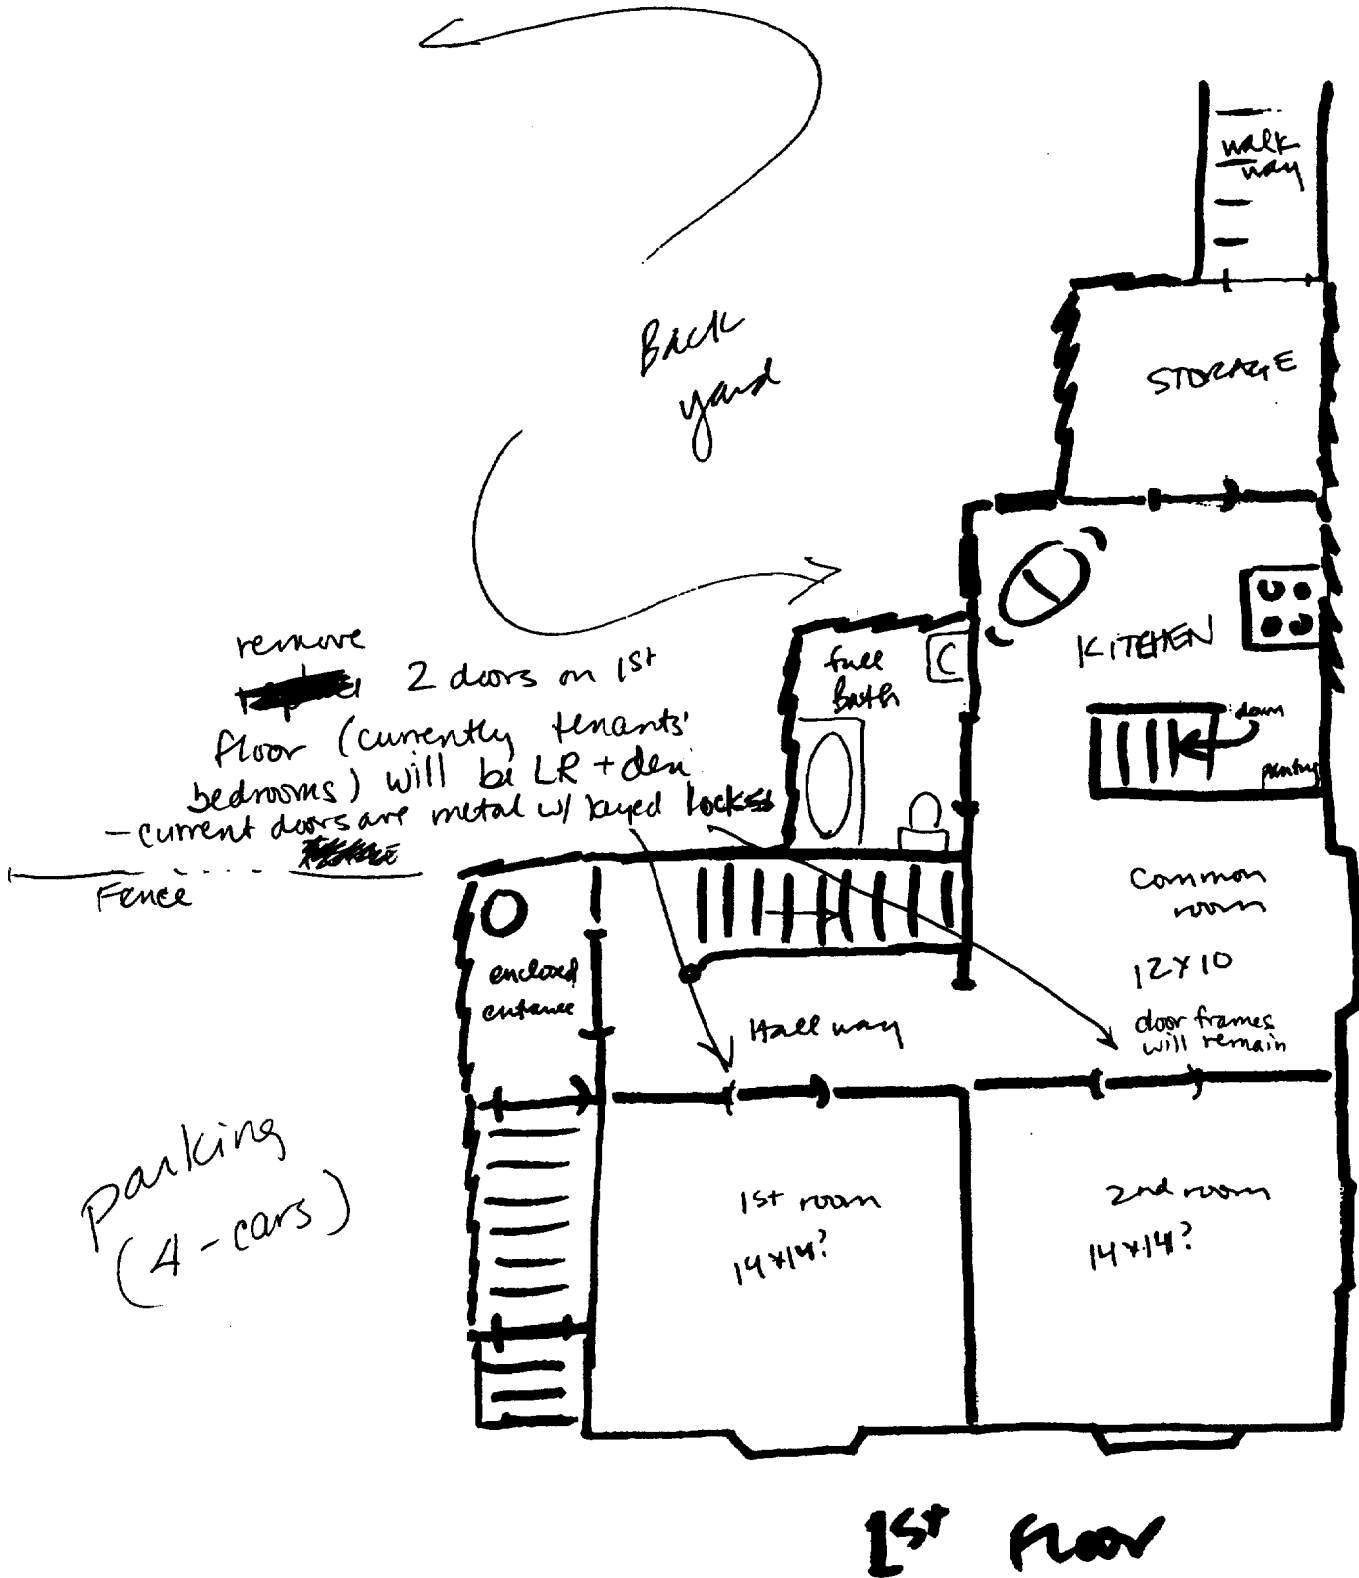 walk
way
STORAGE
Back
yard
KITCHEN
full
Bath
C
down
pantry
remove
2 doors on 1st
floor (currently tenants'
bedrooms) will be LR + den
- current doors are metal w/ keyed locks
Fence
enclosed
entrance
Common
room
12x10
door frames
will remain
Hallway
parking
(4-cars)
1st room
14x14?
2nd room
14x14?
1st Floor